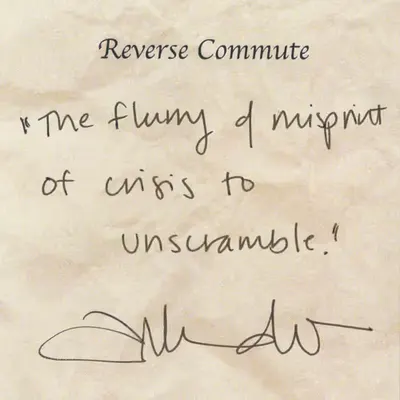 Reverse Commute
"The flurry of misprint
of crisis to
unscramble."